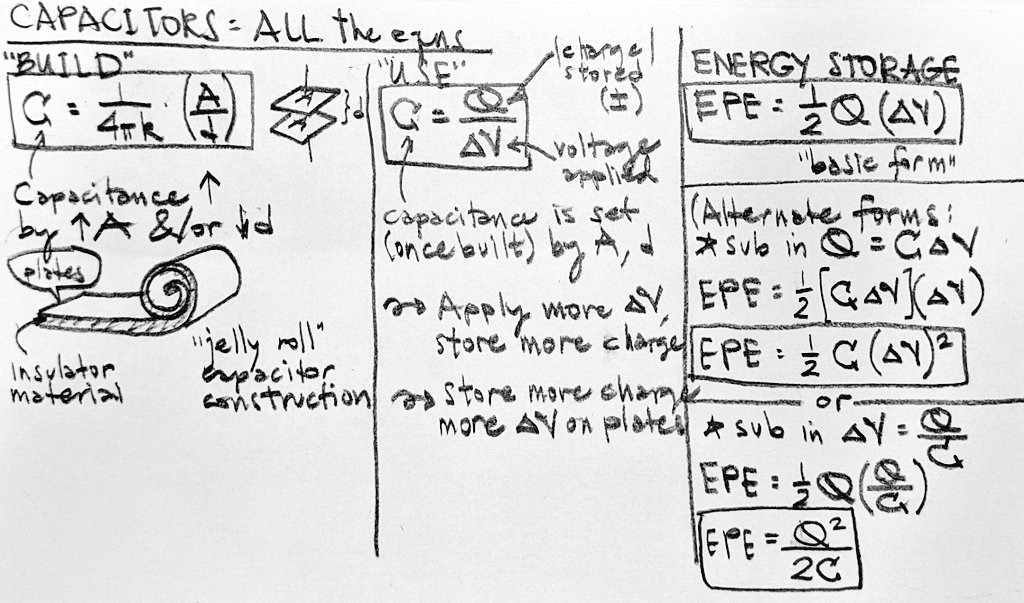 CAPACITORS = ALL the eqns
"BUILD"
C = 1/4πk (A/d)
A
A
}d
Capacitance ↑
by ↑A &/or ↓d
plates
insulator
material
"jelly roll"
capacitor
construction
"USE"
|charge|
stored
(±)
C = Q/ΔV
voltage
applied
capacitance is set
(once built) by A, d
→ Apply more ΔV,
store more charge
→ Store more charge
more ΔV on plates
ENERGY STORAGE
EPE = 1/2 Q (ΔV)
"basic form"
(Alternate forms:
* sub in Q = C ΔV
EPE = 1/2 [C ΔV](ΔV)
EPE = 1/2 C (ΔV)²
or
* sub in ΔV = Q/C
EPE = 1/2 Q (Q/C)
EPE = Q²/2C